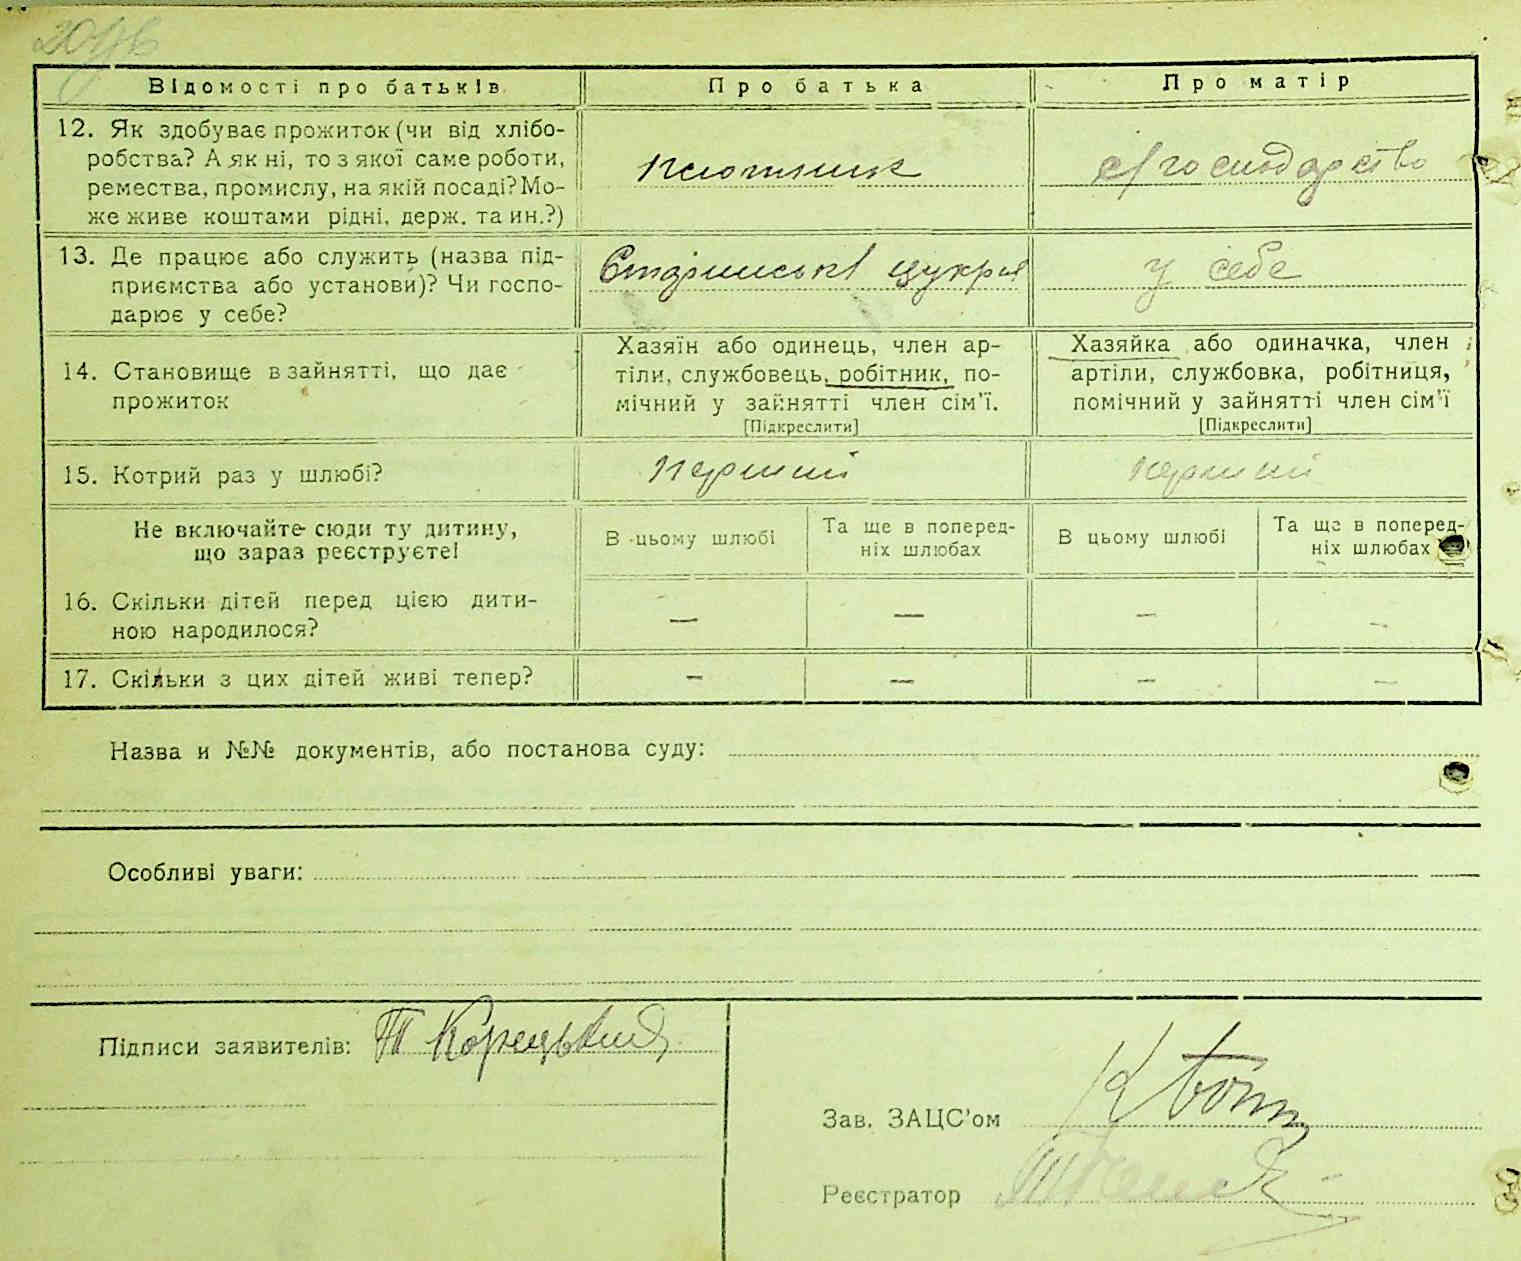 Відомості про батьків
Про батька
Про матір
12. Як здобуває прожиток (чи від хлібо-
робства? А як ні, то з якої саме роботи,
ремества, промислу, на якій посаді? Мо-
же живе коштами рідні, держ. та ин.?)
плотник
с/господарство
13. Де працює або служить (назва під-
приємства або установи)? Чи госпо-
дарює у себе?
у себе
14. Становище в зайнятті, що дає
прожиток
Хазяїн або одинець, член ар-
тіли, службовець, робітник, по-
мічний у зайнятті член сім'ї.
[Підкреслити]
Хазяйка або одиначка, член
артіли, службовка, робітниця,
помічний у зайнятті член сім'ї
[Підкреслити]
15. Котрий раз у шлюбі?
перший
перший
Не включайте сюди ту дитину,
що зараз реєструєте!
В цьому шлюбі
Та ще в поперед-
ніх шлюбах
В цьому шлюбі
Та ще в поперед-
ніх шлюбах
16. Скільки дітей перед цією дити-
ною народилося?
— — — —
17. Скільки з цих дітей живі тепер?
— — — —
Назва и №№ документів, або постанова суду:
Особливі уваги:
Підписи заявителів:
Корецький
Зав. ЗАЦС'ом
Реєстратор